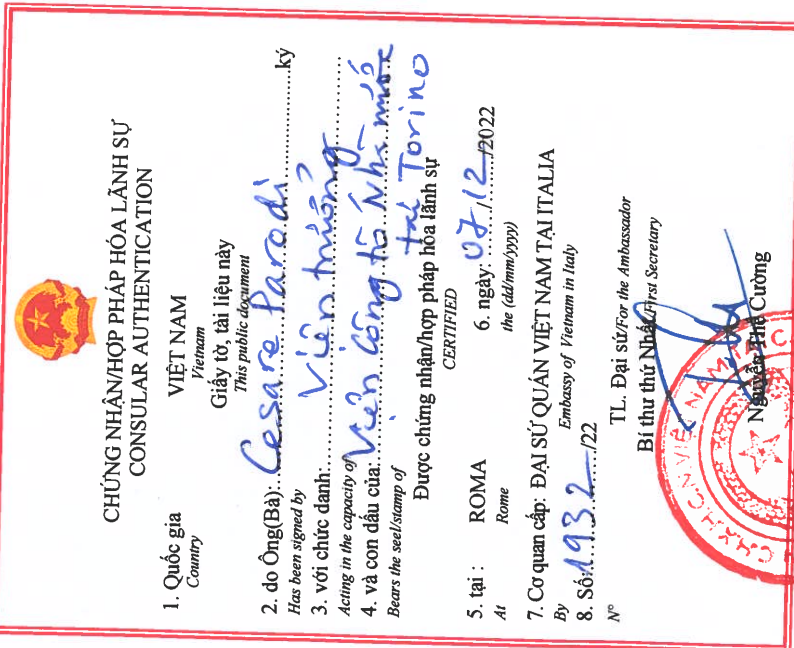 CHỨNG NHẬN/HỢP PHÁP HÓA LÃNH SỰ
CONSULAR AUTHENTICATION
1. Quốc gia VIỆT NAM
Country Vietnam
Giấy tờ, tài liệu này
This public document
2. do Ông(Bà):...Cesare Parodi...ký
Has been signed by
3. với chức danh:...Viện trưởng...
Acting in the capacity of
4. và con dấu của: Viện Công tố Nhà nước
Bears the seel/stamp of tại Torino
Được chứng nhận/hợp pháp hóa lãnh sự
CERTIFIED
5. tại : ROMA 6. ngày: 07/12/2022
At Rome the (dd/mm/yyyy)
7. Cơ quan cấp: ĐẠI SỨ QUÁN VIỆT NAM TẠI ITALIA
By Embassy of Vietnam in Italy
8. Số: 1932/22
N°
TL. Đại sứ/For the Ambassador
Bí thư thứ Nhất/First Secretary
C.H.X.H.C.N. VIỆT NAM
Nguyễn Thế Cường